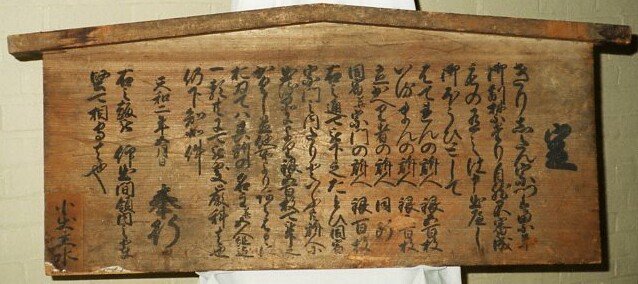 定
きりしたん宗門ハ累年
御制禁たり自然不審成
もの有之ハ申出へし
御ほうひとして
はてれんの訴人 銀五百枚
いるまんの訴人 銀三百枚
立かへり者の訴人 同断
同宿并宗門の訴人 銀百枚
右之通可被下之たとひ同宿
宗門之内たりといふとも訴人
に出る品により銀五百枚可被下之
かくし置他所よりあらはるゝに
おゐてハ其所之名主并五人組迄
一類共ニ可処厳科者也
仍下知如件
天和二年五月日 奉行
右之趣被 仰出間領内之輩
堅可相守者也